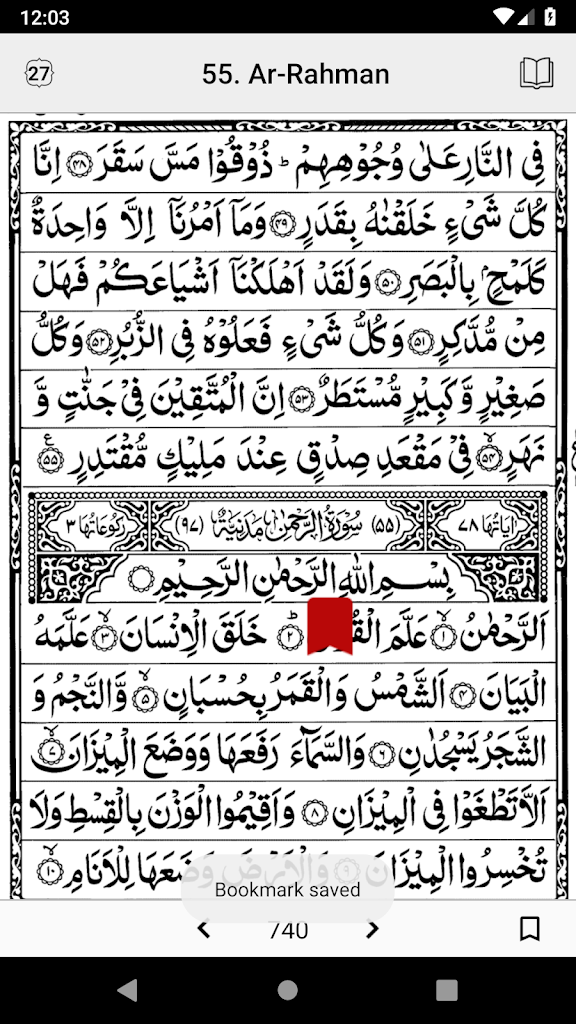 12:03
27
55. Ar-Rahman
فِي النَّارِ عَلٰى وُجُوْهِهِمْ ؕ ذُوْقُوْا مَسَّ سَقَرَ ﴿۴۸﴾ اِنَّا
كُلَّ شَيْءٍ خَلَقْنٰهُ بِقَدَرٍ ﴿۴۹﴾ وَمَاۤ اَمْرُنَاۤ اِلَّا وَاحِدَةٌ
كَلَمْحٍۭ بِالْبَصَرِ ﴿۵۰﴾ وَلَقَدْ اَهْلَكْنَاۤ اَشْيَاعَكُمْ فَهَلْ
مِنْ مُّدَّكِرٍ ﴿۵۱﴾ وَكُلُّ شَيْءٍ فَعَلُوْهُ فِي الزُّبُرِ ﴿۵۲﴾ وَكُلُّ
صَغِيْرٍ وَّكَبِيْرٍ مُّسْتَطَرٌ ﴿۵۳﴾ اِنَّ الْمُتَّقِيْنَ فِيْ جَنّٰتٍ وَّ
نَهَرٍ ﴿۵۴﴾ فِيْ مَقْعَدِ صِدْقٍ عِنْدَ مَلِيْكٍ مُّقْتَدِرٍ ﴿۵۵﴾ ع
اٰيَاتُهَا ٧٨ (٥٥) سُوْرَةُ الرَّحْمٰنِ مَدَنِيَّةٌ (٩٧) رُكُوْعَاتُهَا ٣
بِسْمِ اللهِ الرَّحْمٰنِ الرَّحِيْمِ
اَلرَّحْمٰنُ ﴿۱﴾ عَلَّمَ ﴿۲﴾ خَلَقَ الْاِنْسَانَ ﴿۳﴾ عَلَّمَهُ
الْبَيَانَ ﴿۴﴾ اَلشَّمْسُ وَالْقَمَرُ بِحُسْبَانٍ ﴿۵﴾ وَّالنَّجْمُ وَ
الشَّجَرُ يَسْجُدٰنِ ﴿۶﴾ وَالسَّمَآءَ رَفَعَهَا وَوَضَعَ الْمِيْزَانَ ﴿۷﴾
اَلَّا تَطْغَوْا فِي الْمِيْزَانِ ﴿۸﴾ وَاَقِيْمُوا الْوَزْنَ بِالْقِسْطِ وَلَا
تُخْسِرُوا الْمِيْزَانَ ﴿۹﴾ وَالْاَرْضَ وَضَعَهَا لِلْاَنَامِ ﴿۱۰﴾
Bookmark saved
740